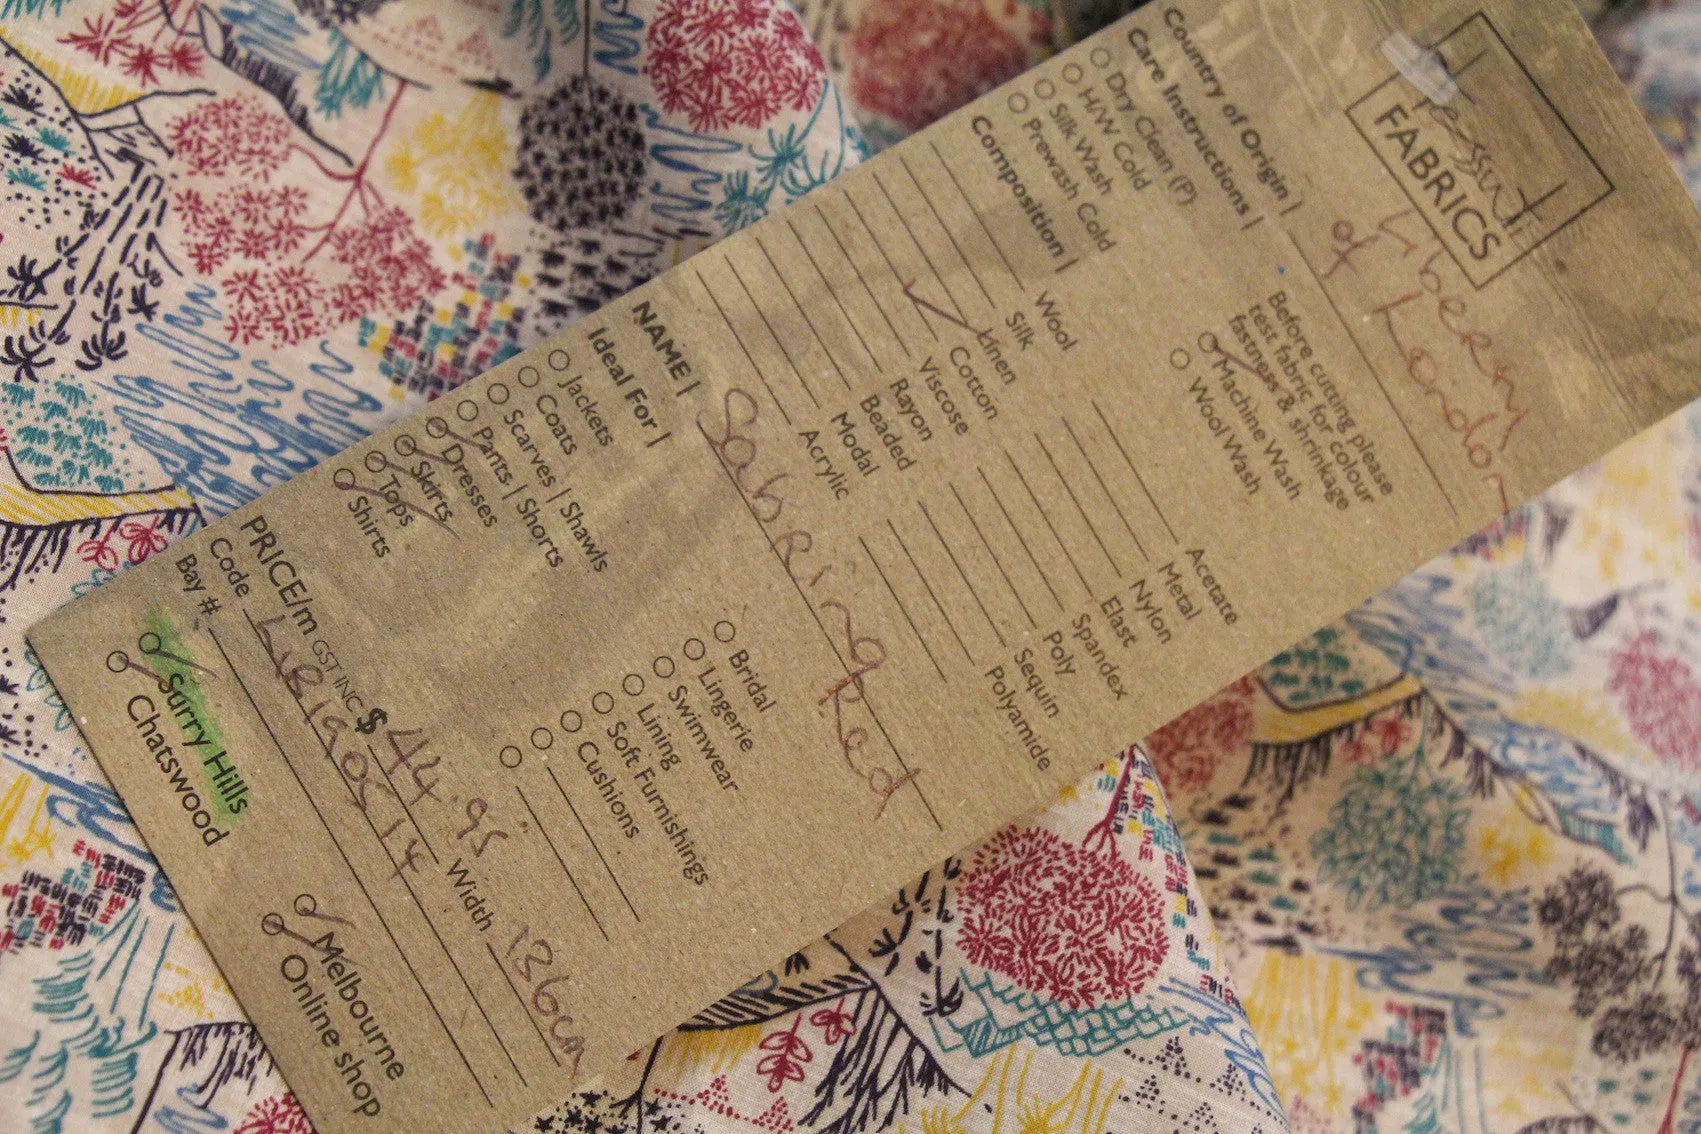 Tessuti
FABRICS
Liberty
of London
Country of Origin |
Before cutting please
test fabric for colour
fastness & shrinkage
Care Instructions |
Dry Clean (P)
H/W Cold
Silk Wash
Prewash Cold
Machine Wash
Wool Wash
Composition |
Wool
Silk
Linen
Cotton
Viscose
Rayon
Beaded
Modal
Acrylic
Acetate
Metal
Nylon
Elast
Spandex
Poly
Sequin
Polyamide
NAME | Sabrina Red
Ideal For |
Jackets
Coats
Scarves | Shawls
Pants | Shorts
Dresses
Skirts
Tops
Shirts
Bridal
Lingerie
Swimwear
Lining
Soft Furnishings
Cushions
PRICE/m GST INC $ 44.95 Width 136cm
Code
Bay #
Surry Hills
Chatswood
Melbourne
Online shop